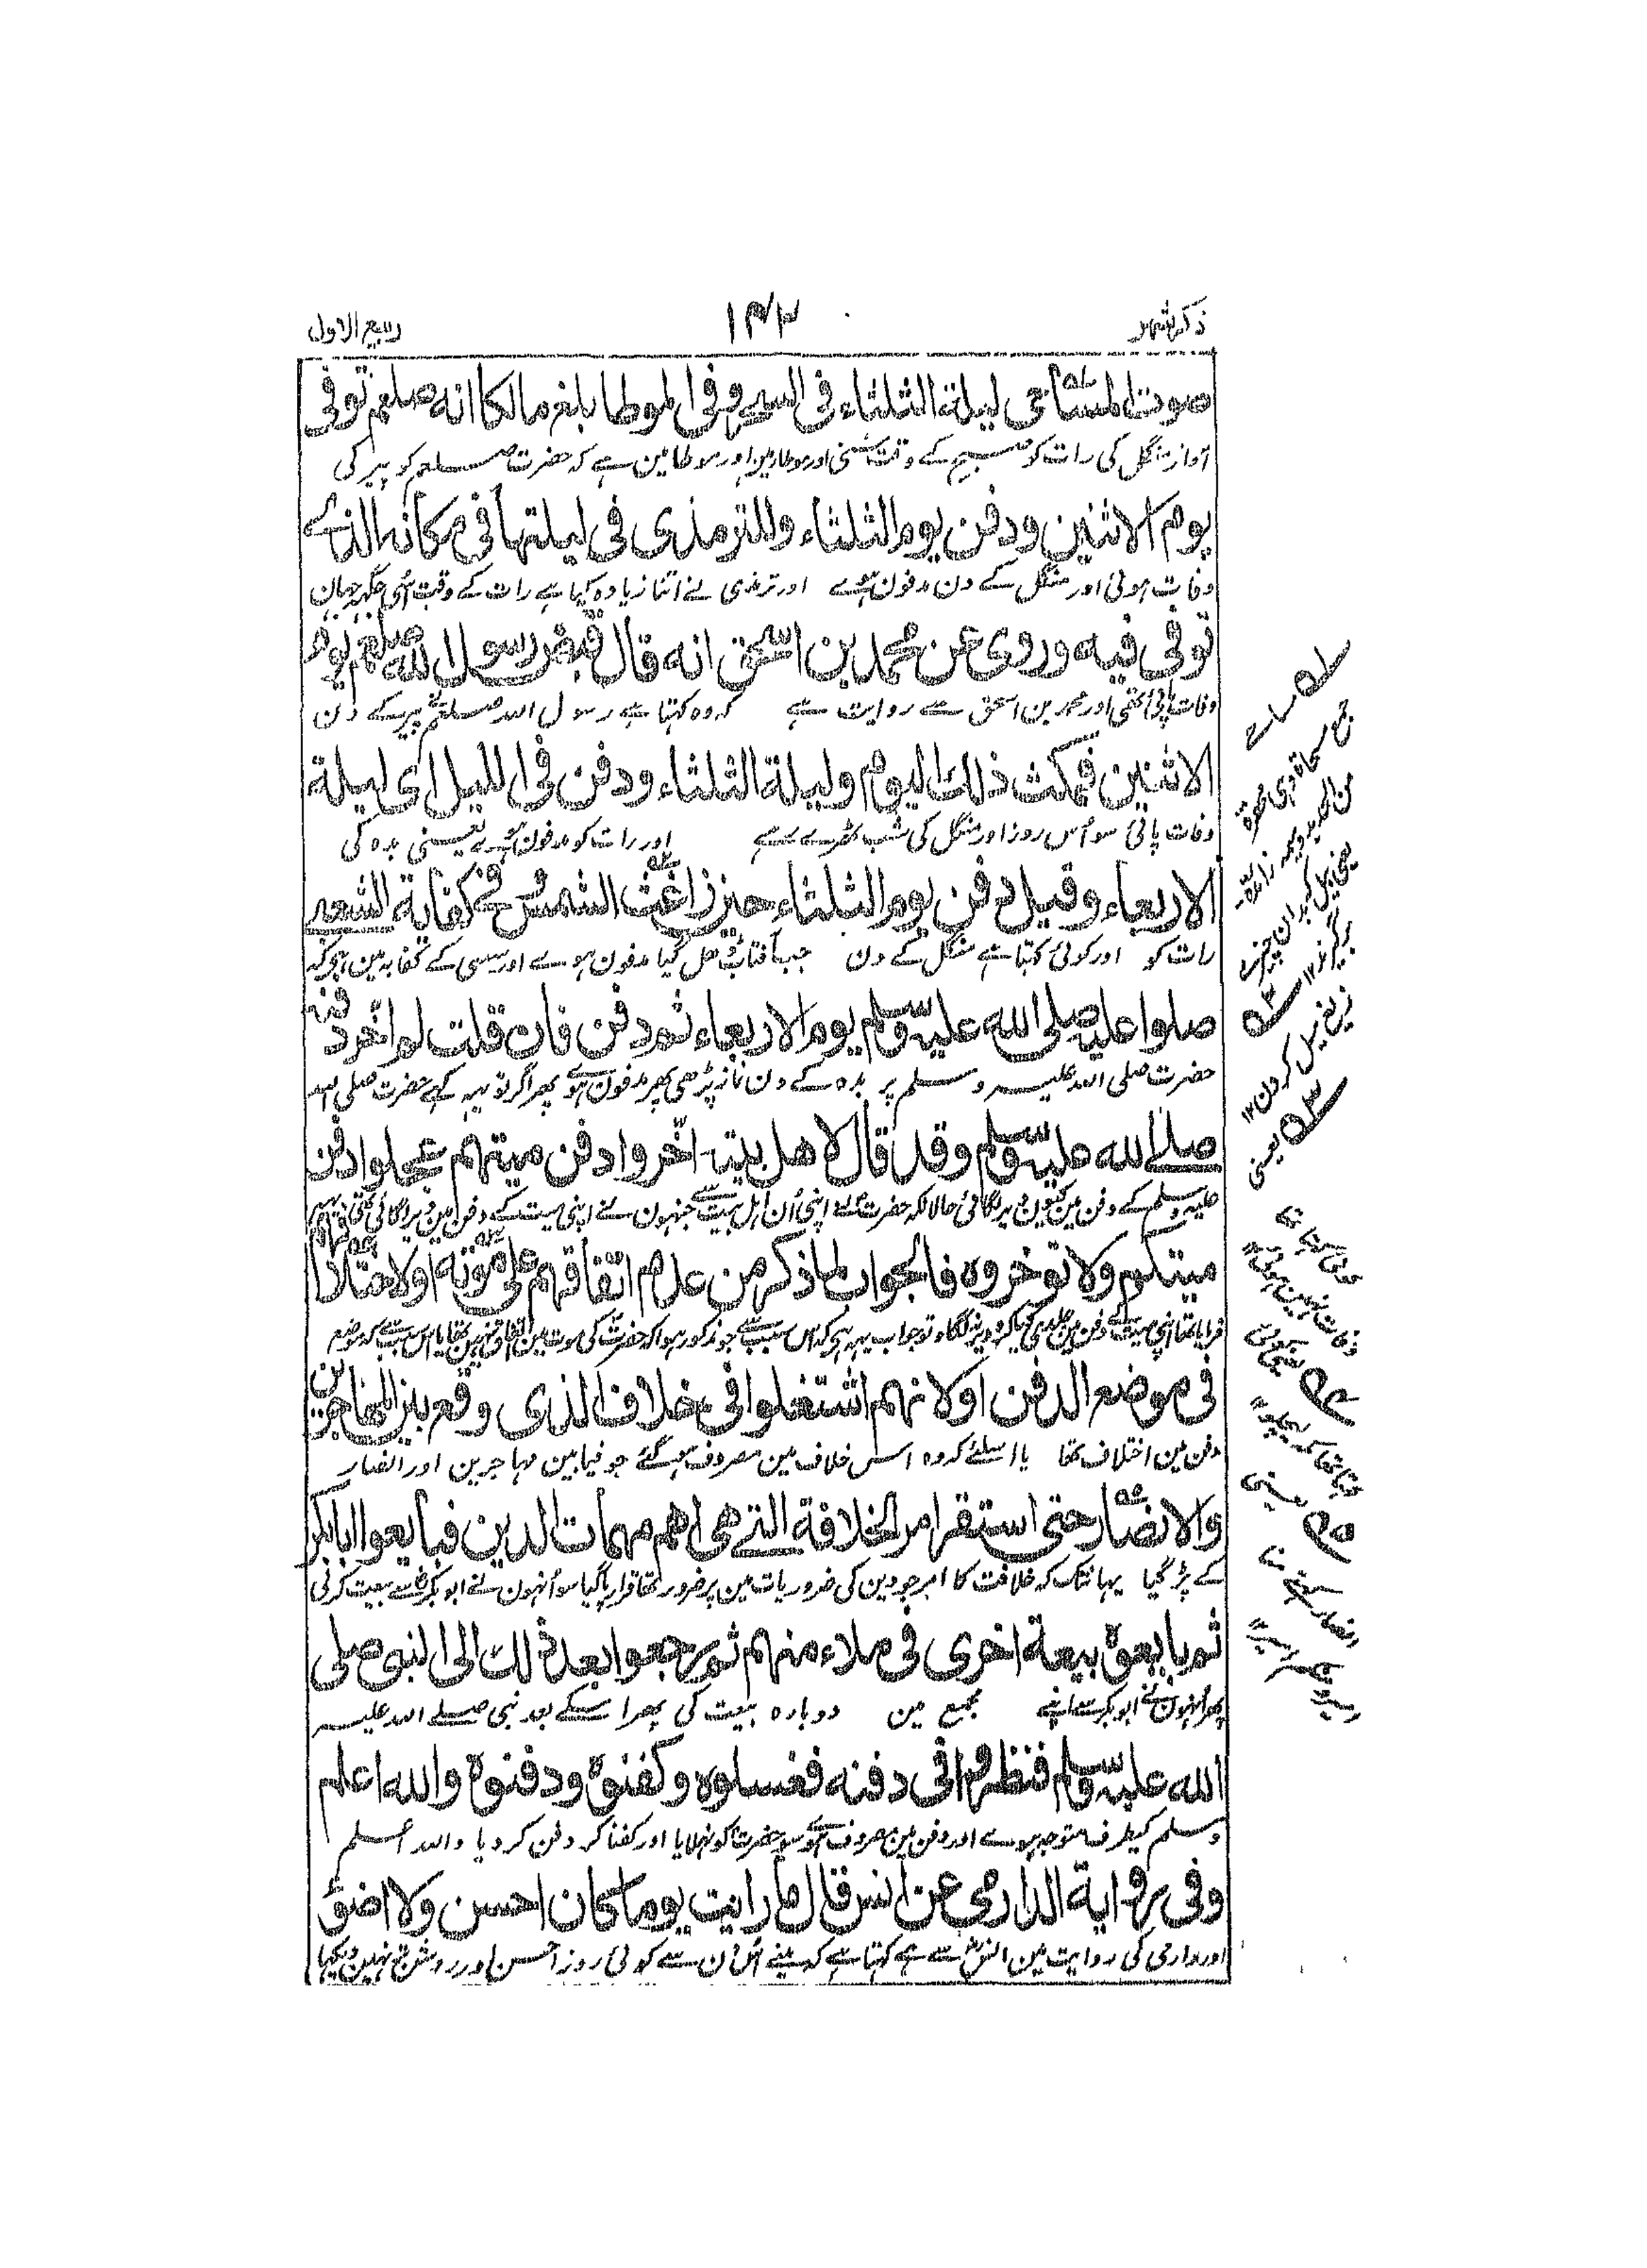 ذکر شہر ۱۴۲ ربیع الاول
صوت المساحی لیلة الثلثاء فی السحر وفی الموطا بلغ مالکا انه صلعم توفی
آواز منگل کی رات کو صبح کے وقت سنی اور موطا مین ہے کہ حضرت صلعم کو پیر کی
یوم الاثنین ودفن یوم الثلثاء وللترمذی فی لیلتها فی مکانه الذے
وفات ہوئی اور منگل کے دن مدفون ہوے اور ترمذی نے اتنا زیادہ کیا ہے رات کے وقت اُسی جگہہ جہان
توفی فیه وروی عن محمد بن اسحٰق انه قال قبض رسول الله صلعم یوم
وفات پائی تھی اور محمد بن اسحق سے روایت ہے کہ وہ کہتا ہے رسول اللہ صلعم پیر کے دن
الاثنین فمکث ذلك الیوم ولیلة الثلثاء ودفن فی اللیل ای لیلة
وفات پائی سو اُس روز اور منگل کی شب ٹھرے رہے اور رات کو مدفون ہوے یعنی بدہ کی
الاربعاء وقیل دفن یوم الثلثاء حین زاغت الشمس وفی کفایة الشعبی
رات کو اور کوئی کہتا ہے منگل کے دن جب آفتاب ڈھل گیا مدفون ہوے اور کے کفایہ مین ہے کہ
صلوا علیه صلی الله علیه وسلم یوم الاربعاء ثم دفن فان قلت لم اُخّر دفنه
حضرت صلی اللہ علیہ وسلم پر بدہ کے دن نماز پڑھی پھر مدفون ہوے پھر اگر تو یہہ کہے حضرت صلی اللہ
صلے الله علیه وسلم وقد قال لاهل بیت اخّروا دفن میتهم عجلوا دفن
علیہ وسلم کے دفن مین کیون دیر لگائی حالانکہ حضرت نے اپنی اُن اہل بیت سے جنہون نے اپنی میت کے دفن مین دیر لگائی تھی یہہ
میتکم ولا توخروه فالجواب لما ذکر من عدم اتفاقهم علی موته او لاختلافهم
فرمایا تھا اپنی میت کے دفن مین جلدی کیا کرو دیر نہ لگاؤ تو جواب یہہ ہے کہ اس سبب سے جو مذکور ہوا کہ حضرت کی موت مین اتفاق نہین تھا یا اس سبب سے کہ موضع
فی موضع الدفن او لانهم اشتغلوا فی خلاف الذی وقع بین المهاجرین
دفن مین اختلاف تھا یا اسلئے کہ وہ اس خلاف مین مصروف ہو گئے جو فیما بین مہاجرین اور انصار
والانصار حتی استقر امر الخلافة التے هی اهم مهمات الدین فبایعوا ابابکر
کے پڑ گیا یہانتک کہ خلافت کا امر جو دین کی ضروریات مین پر ضرور تھا قرار پا گیا سو اُنہون نے ابوبکر سے بیعت کرلی
ثم بایعوه بیعة اخری فی ملاء منهم ثم رجعوا بعد ذلك الی النبی صلی
پھر اُنہون نے ابوبکر سے اپنے مجمع مین دوبارہ بیعت کی پھر اسکے بعد نبی صلے اللہ علیہ
الله علیه وسلم فنظروا فی دفنه فغسلوه وکفنوه ودفنوه والله اعلم
وسلم کیطرف متوجہ ہوے اور دفن مین مصروف ہوے سو حضرت کو نہلایا اور کفنا کر دفن کر دیا واللہ اعلم
وفی روایة الدارمی عن انس قال ما رایت یوما کان احسن ولا اضوٴ
اور دارمی کی روایت مین انس سے ہے کہتا ہے کہ مینے اُس دن سے کوئی روز احسن اور روشن تر نہین دیکھا